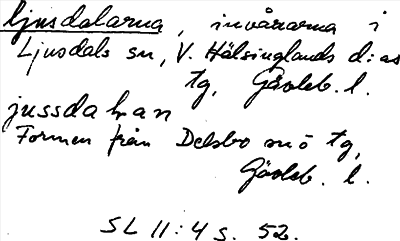 ljusdalarna, invånarna i
Ljusdals sn, V. Hälsinglands d:as
tg, Gävleb. l.
jussdaḷ̣an
Formen från Delsbo sn ö tg,
Gävleb. l.
SL II:4 s. 52.